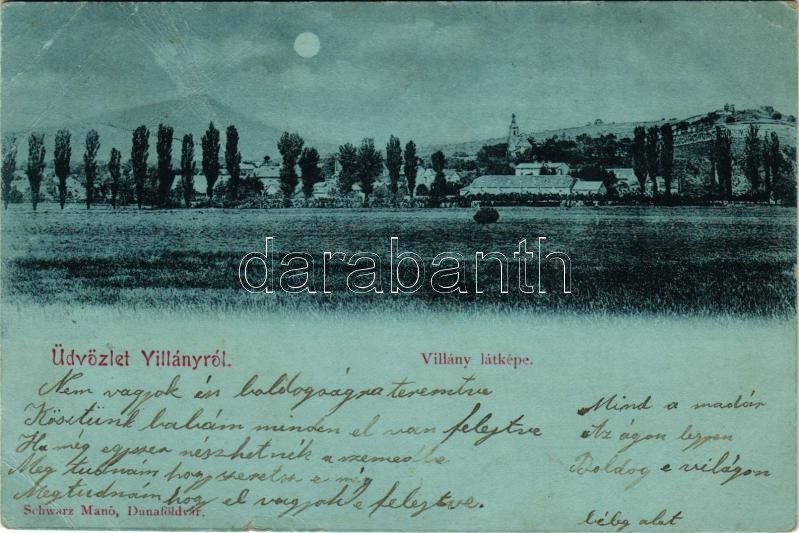 darabanth
Üdvözlet Villányról.
Villány látképe.
Nem vagyok én boldogságra teremtve
Kösitünk babám minden el van felejtve
Ha még egyszer nészhetnék a szemedbe
Meg tudnám hogy szeretsz e még
Megtudnám hogy el vagyok e felejtve.
Mind a madár
Az ágon legyen
Boldog e világon
alat
Schwarz Manó, Dunaföldvár.